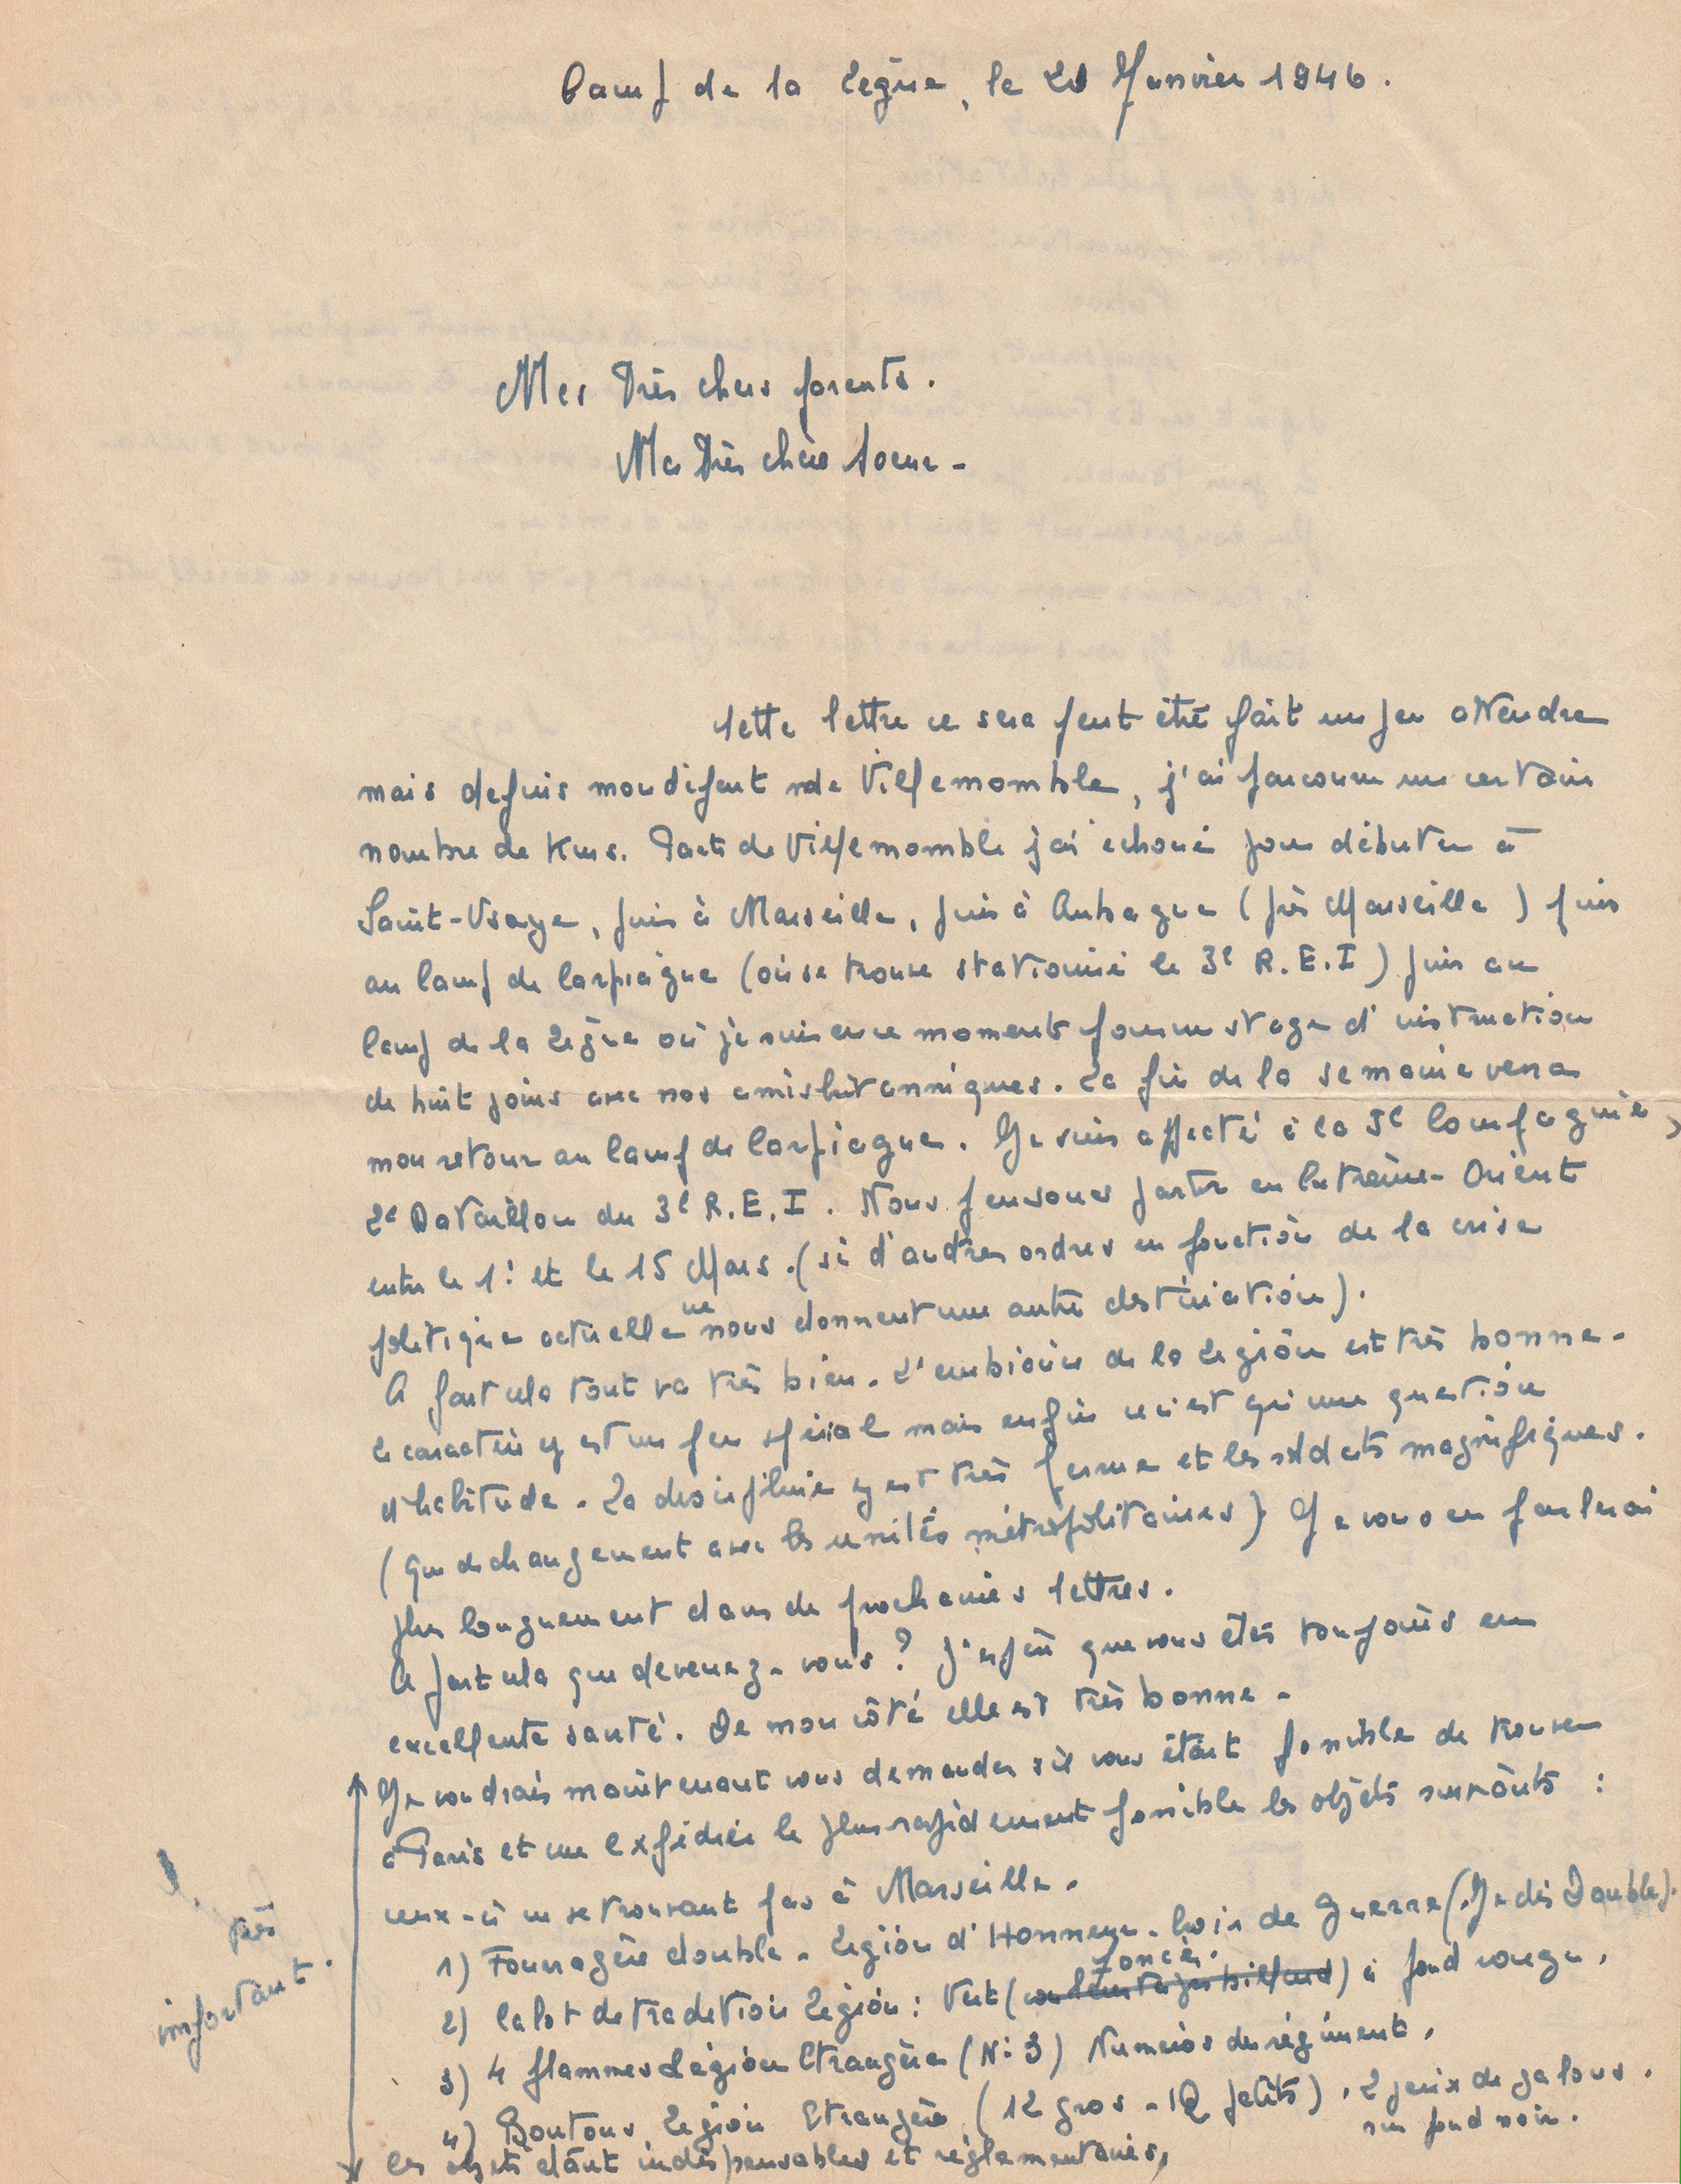 Camp de la Lègue, le 21 Janvier 1946.
Mes Très chers parents.
Ma Très chère soeur -
Cette lettre ce sera peut être fait un peu attendre
mais depuis mon départ de Villemomble, j'ai parcouru un certain
nombre de Kms. Parti de Villemomble j'ai échoué pour débuter à
Saint-Usage, puis à Marseille, puis à Aubagne (près Marseille) puis
au Camp de Carpiagne (où se trouve stationné le 3e R.E.I) puis au
Camp de la Lègue où je suis en ce moment pour un stage d'instruction
de huit jours avec nos amis britanniques. La fin de la semaine verra
mon retour au Camp de Carpiagne. Je suis affecté à la 5e Compagnie,
2e Bataillon du 3e R.E.I. Nous pensons partir en Extrême-Orient
entre le 1: et le 15 Mars. (si d'autres ordres en fonction de la crise
politique actuelle ne nous donnent une autre destination).
A part cela tout va très bien. L'ambiance de la Légion est très bonne -
Le caractère y est un peu spécial mais enfin ce n'est qu'une question
d'habitude. La discipline y est très ferme et les soldats magnifiques.
(Que de changement avec les unités métropolitaines) Je vous en parlerai
plus longuement dans de prochaines lettres.
A part cela que devenez-vous? J'espère que vous êtes toujours en
excellente santé. De mon côté elle est très bonne -
Je voudrais maintenant vous demander s'il vous était possible de trouver
à Paris et me l'expédier le plus rapidement possible les objets suivants :
ceux-ci ne se trouvant pas à Marseille.
1) Fourragère double - Légion d'Honneur - Croix de Guerre (Je dis Double).
2) Calot de tradition Légion: Vert (foncé) à fond rouge.
3) 4 flammes Légion Etrangère (N: 3) Numéros de régiment.
4) Boutons Légion Etrangère (12 gros - 12 petits), 2 paix de galons.
sur fond noir.
Ces objets étant indispensables et réglementaires,
très
important.